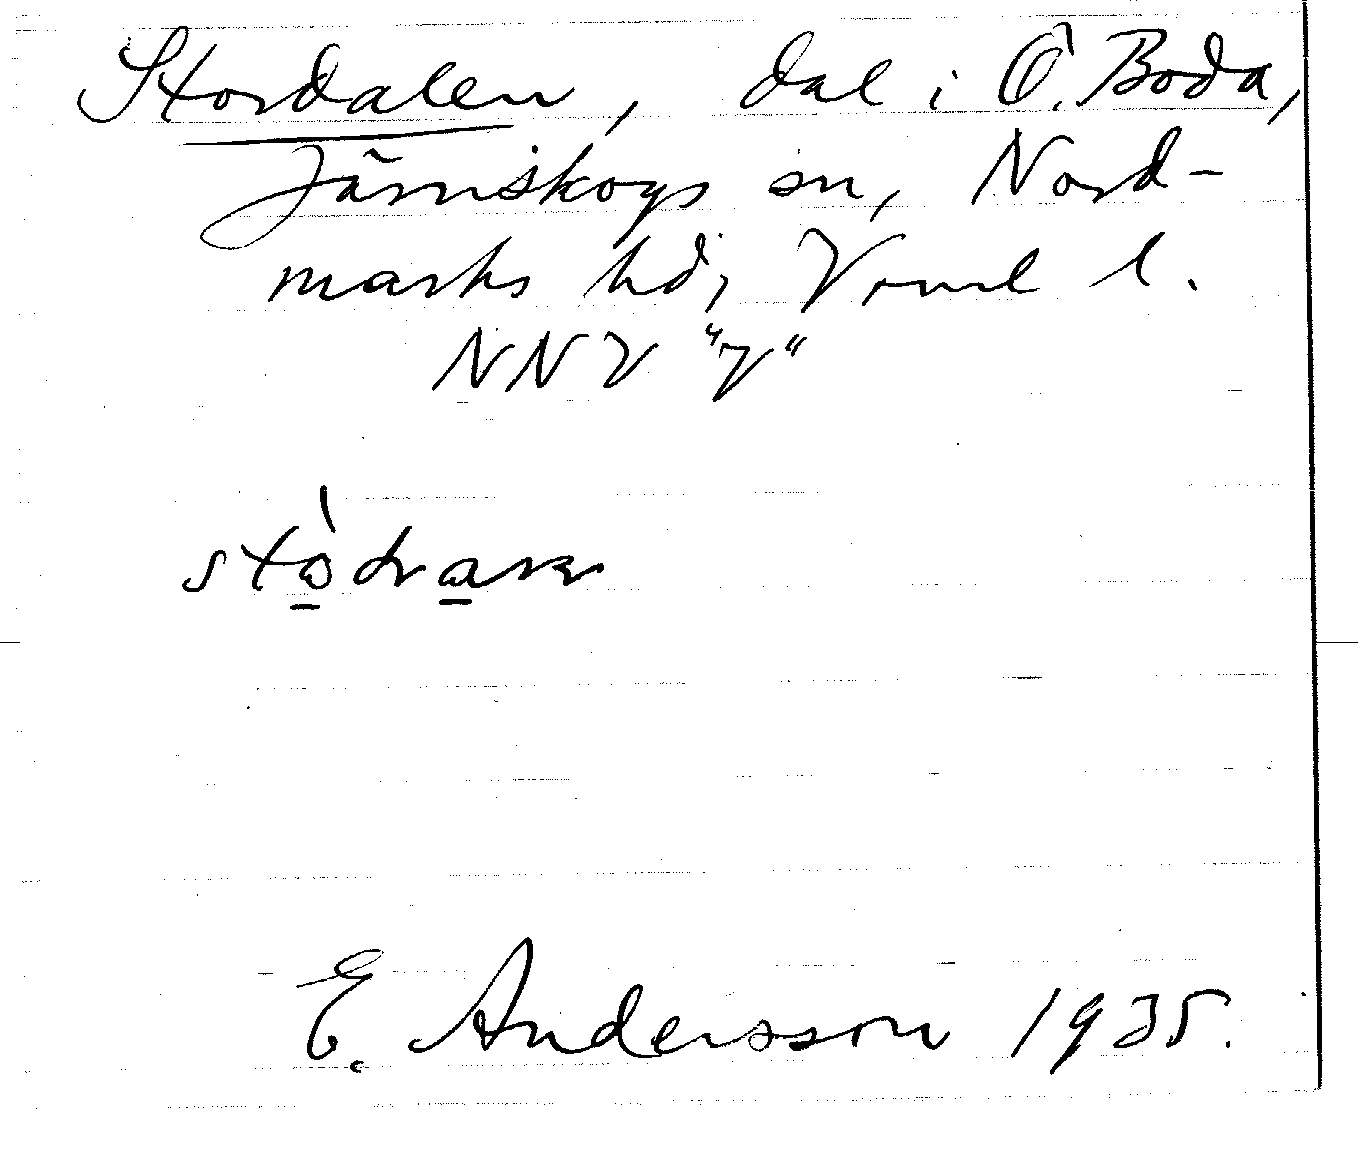 Stordalen, dal i Ö. Boda,
Järnskogs sn, Nord-
marks hd, Värml l.
NNV "V"
E. Andersson 1935.